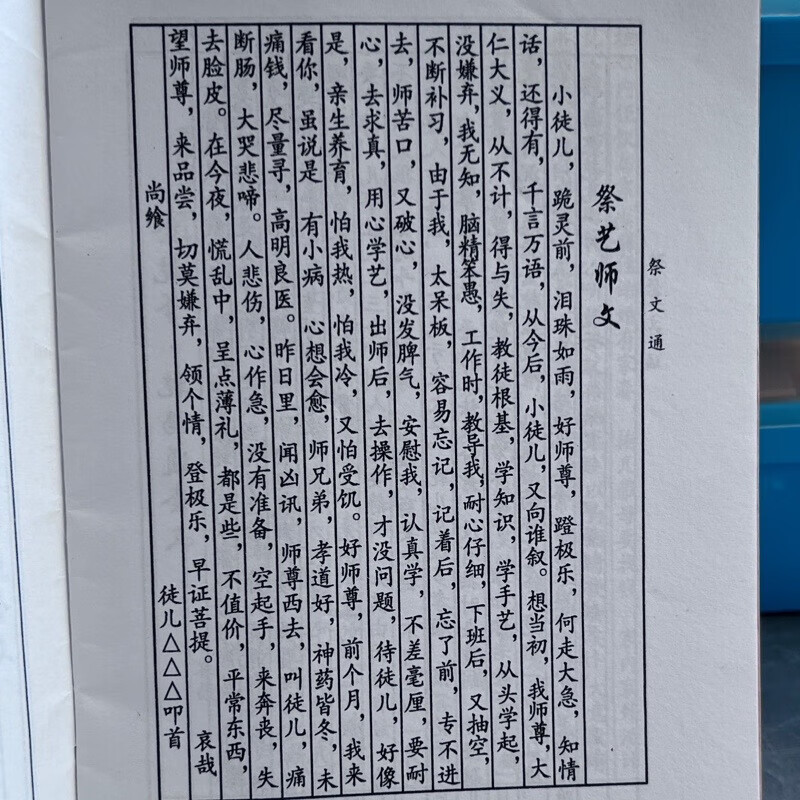 祭文通
祭艺师文
小徒儿，跪灵前，泪珠如雨，好师尊，蹬极乐，何走大急，知情
话，还得有，千言万语，从今后，小徒儿，又向谁叙。想当初，我师尊，大
仁大义，从不计，得与失，教徒根基，学知识，学手艺，从头学起，
没嫌弃，我无知，脑精笨愚，工作时，教导我，耐心仔细，下班后，又抽空，
不断补习，由于我，太呆板，容易忘记，记着后，忘了前，专不进
去，师苦口，又破心，没发脾气，安慰我，认真学，不差毫厘，要耐
心，去求真，用心学艺，出师后，去操作，才没问题，待徒儿，好像
是，亲生养育，怕我热，怕我冷，又怕受饥。好师尊，前个月，我来
看你，虽说是 有小病 心想会愈，师兄弟，孝道好，神药皆冬，未
痛钱，尽量寻，高明良医。昨日里，闻凶讯，师尊西去，叫徒儿，痛
断肠，大哭悲啼。人悲伤，心作急，没有准备，空起手，来奔丧，失
去脸皮。在今夜，慌乱中，呈点薄礼，都是些，不值价，平常东西，
望师尊，来品尝，切莫嫌弃，领个情，登极乐，早证菩提。 哀哉
尚飨 徒儿△△△叩首